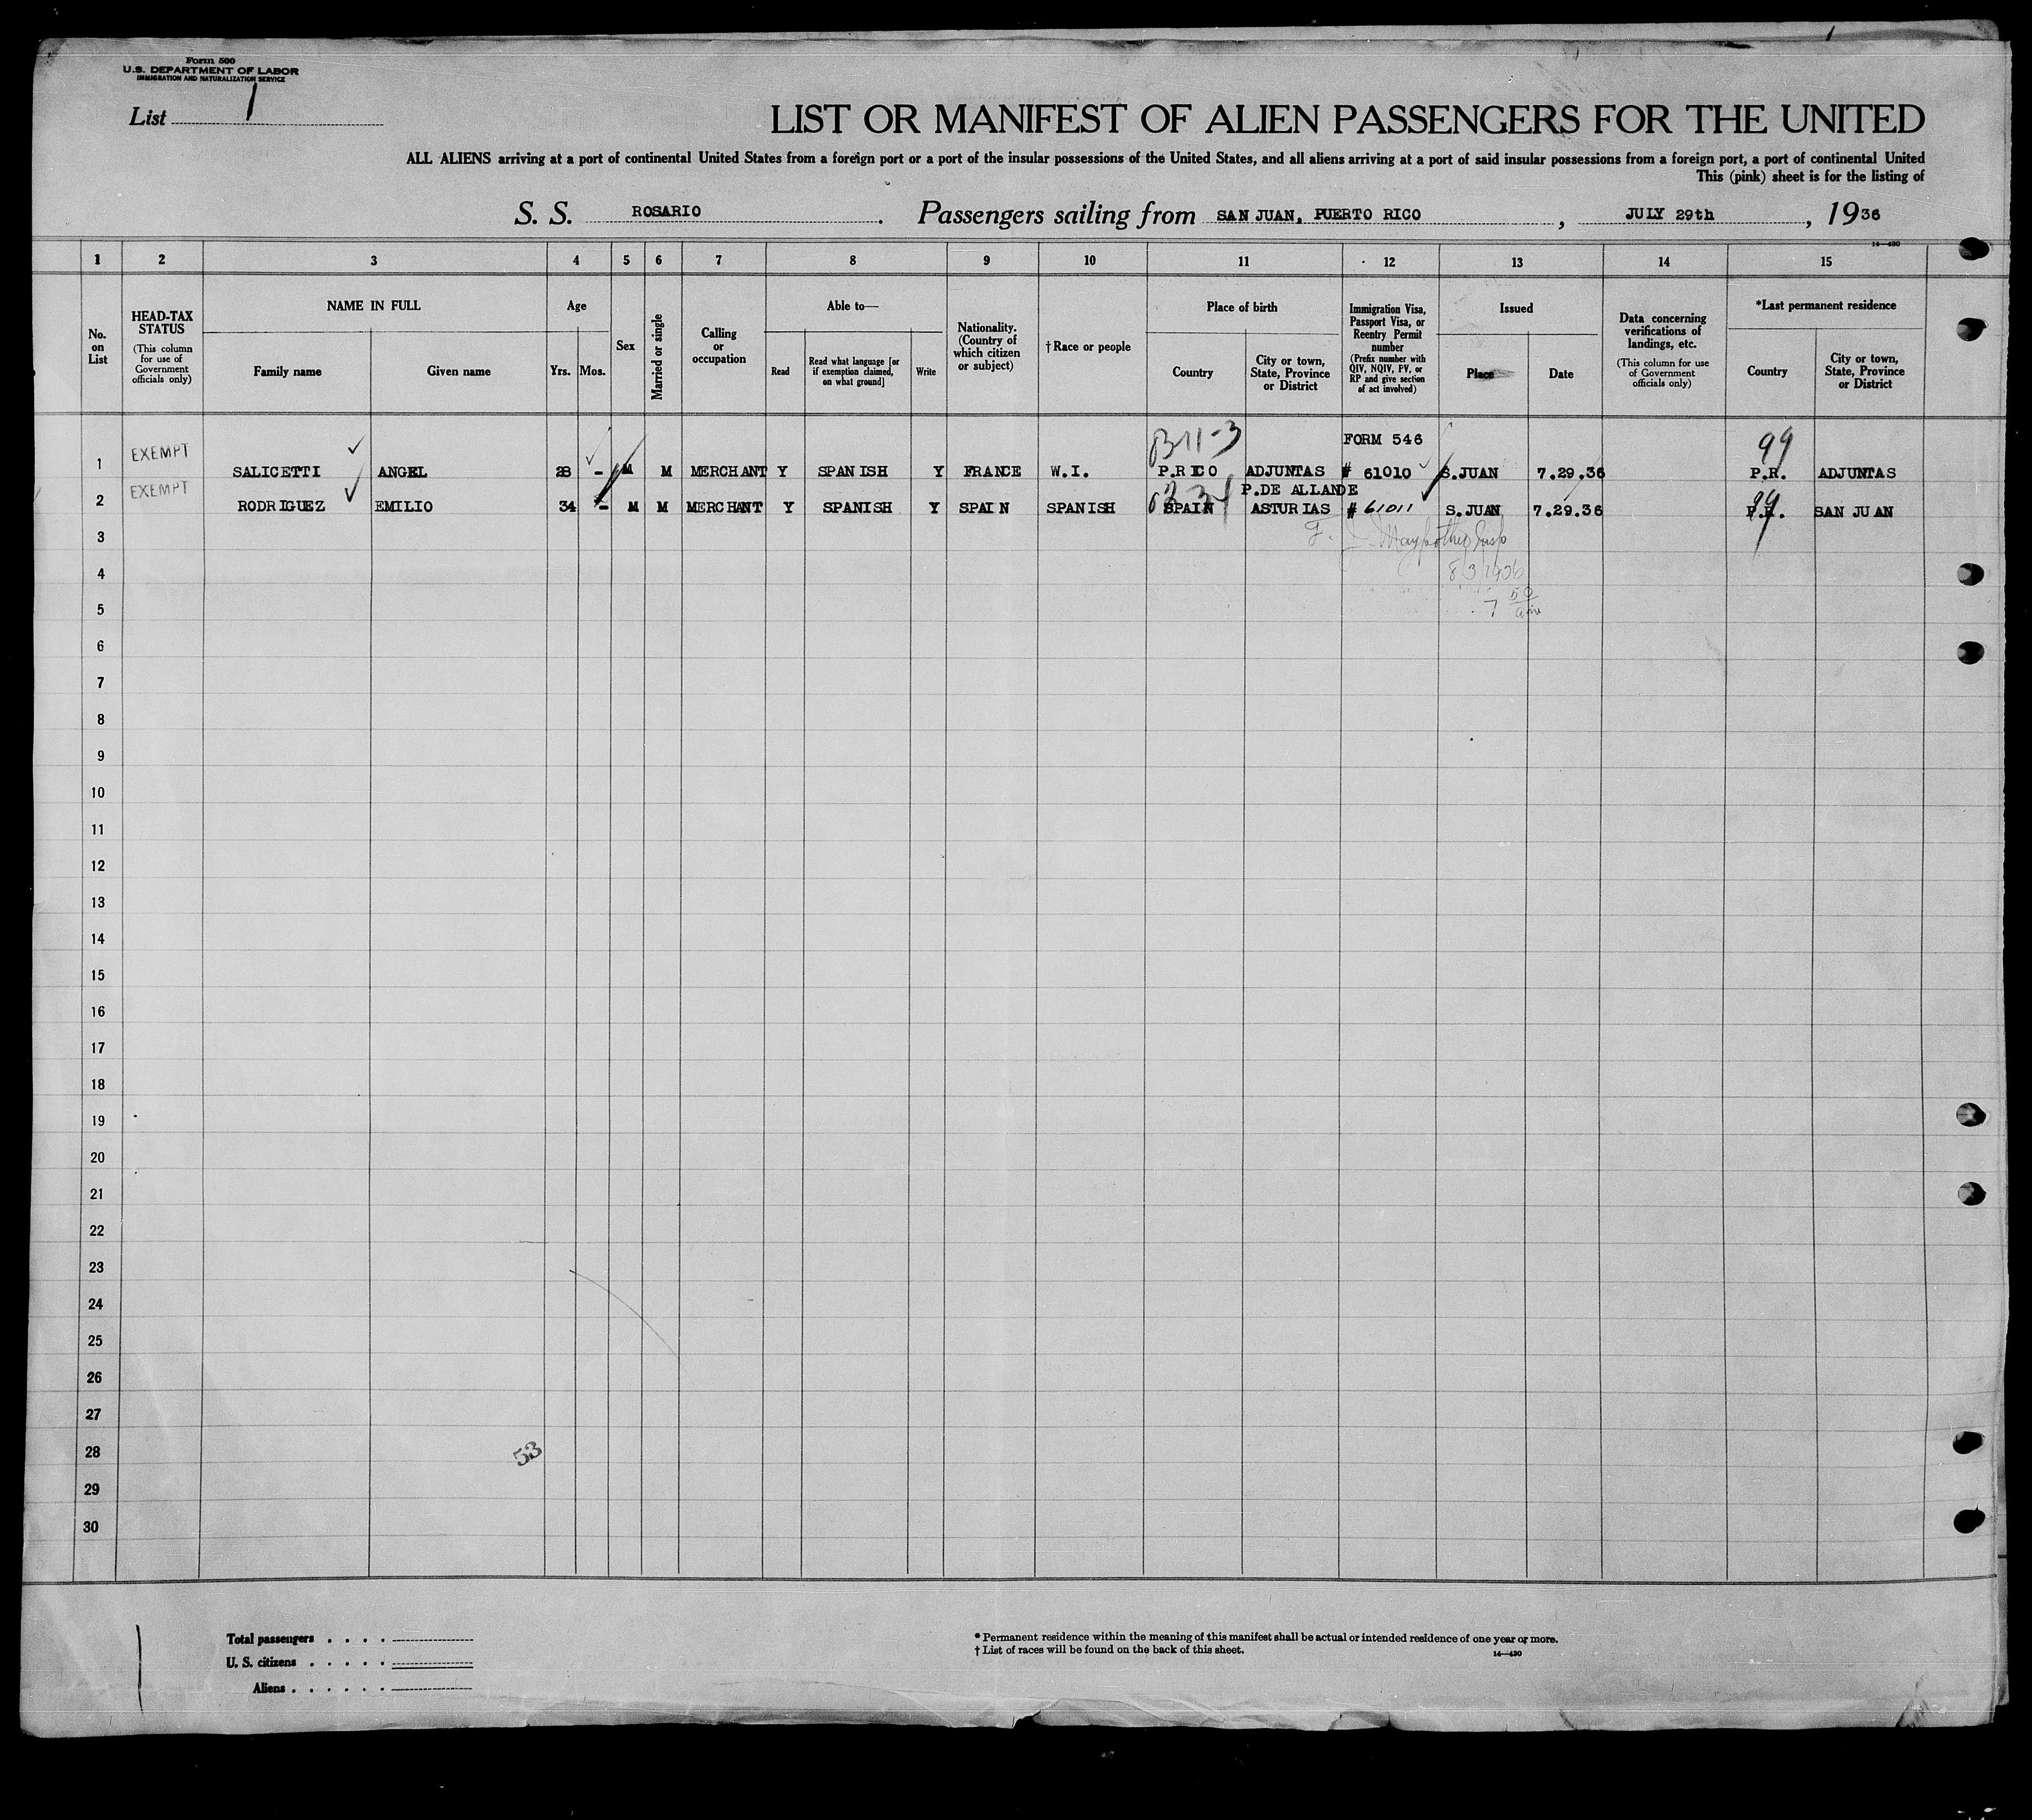 Form 500
U.S. DEPARTMENT OF LABOR
IMMIGRATION AND NATURALIZATION SERVICE
List 1
LIST OR MANIFEST OF ALIEN PASSENGERS FOR THE UNITED
ALL ALIENS arriving at a port of continental United States from a foreign port or a port of the insular possessions of the United States, and all aliens arriving at a port of said insular possessions from a foreign port, a port of continental United
This (pink) sheet is for the listing of
S. S. ROSARIO. Passengers sailing from SAN JUAN, PUERTO RICO, JULY 29th, 1936
14—430
1 2 3 4 5 6 7 8 9 10 11 12 13 14 15
No. on List
HEAD-TAX STATUS
(This column for use of Government officials only)
NAME IN FULL
Family name
Given name
Age
Yrs. Mos.
Sex
Married or single
Calling or occupation
Able to—
Read
Read what language [or if exemption claimed, on what ground]
Write
Nationality. (Country of which citizen or subject)
† Race or people
Place of birth
Country
City or town, State, Province or District
Immigration Visa, Passport Visa, or Reentry Permit number
(Prefix number with QIV, NQIV, PV, or RP and give section of act involved)
Issued
Place
Date
Data concerning verifications of landings, etc.
(This column for use of Government officials only)
*Last permanent residence
Country
City or town, State, Province or District
B-11-3 FORM 546 99
1 EXEMPT SALICETTI ANGEL 28 - M M MERCHANT Y SPANISH Y FRANCE W.I. P.RICO ADJUNTAS # 61010 S.JUAN 7.29.36 P.R. ADJUNTAS
P.DE ALLANDE
2 EXEMPT RODRIGUEZ EMILIO 34 - M M MERCHANT Y SPANISH Y SPAIN SPANISH SPAIN ASTURIAS # 61011 S.JUAN 7.29.36 P.R. SAN JUAN
99
3
4
8/3/1936
5
7 50 am
6
7
8
9
10
11
12
13
14
15
16
17
18
19
20
21
22
23
24
25
26
27
28
53
29
30
Total passengers . . . .
U. S. citizens . . . . .
Aliens . . . . . .
* Permanent residence within the meaning of this manifest shall be actual or intended residence of one year or more.
† List of races will be found on the back of this sheet.
14—430